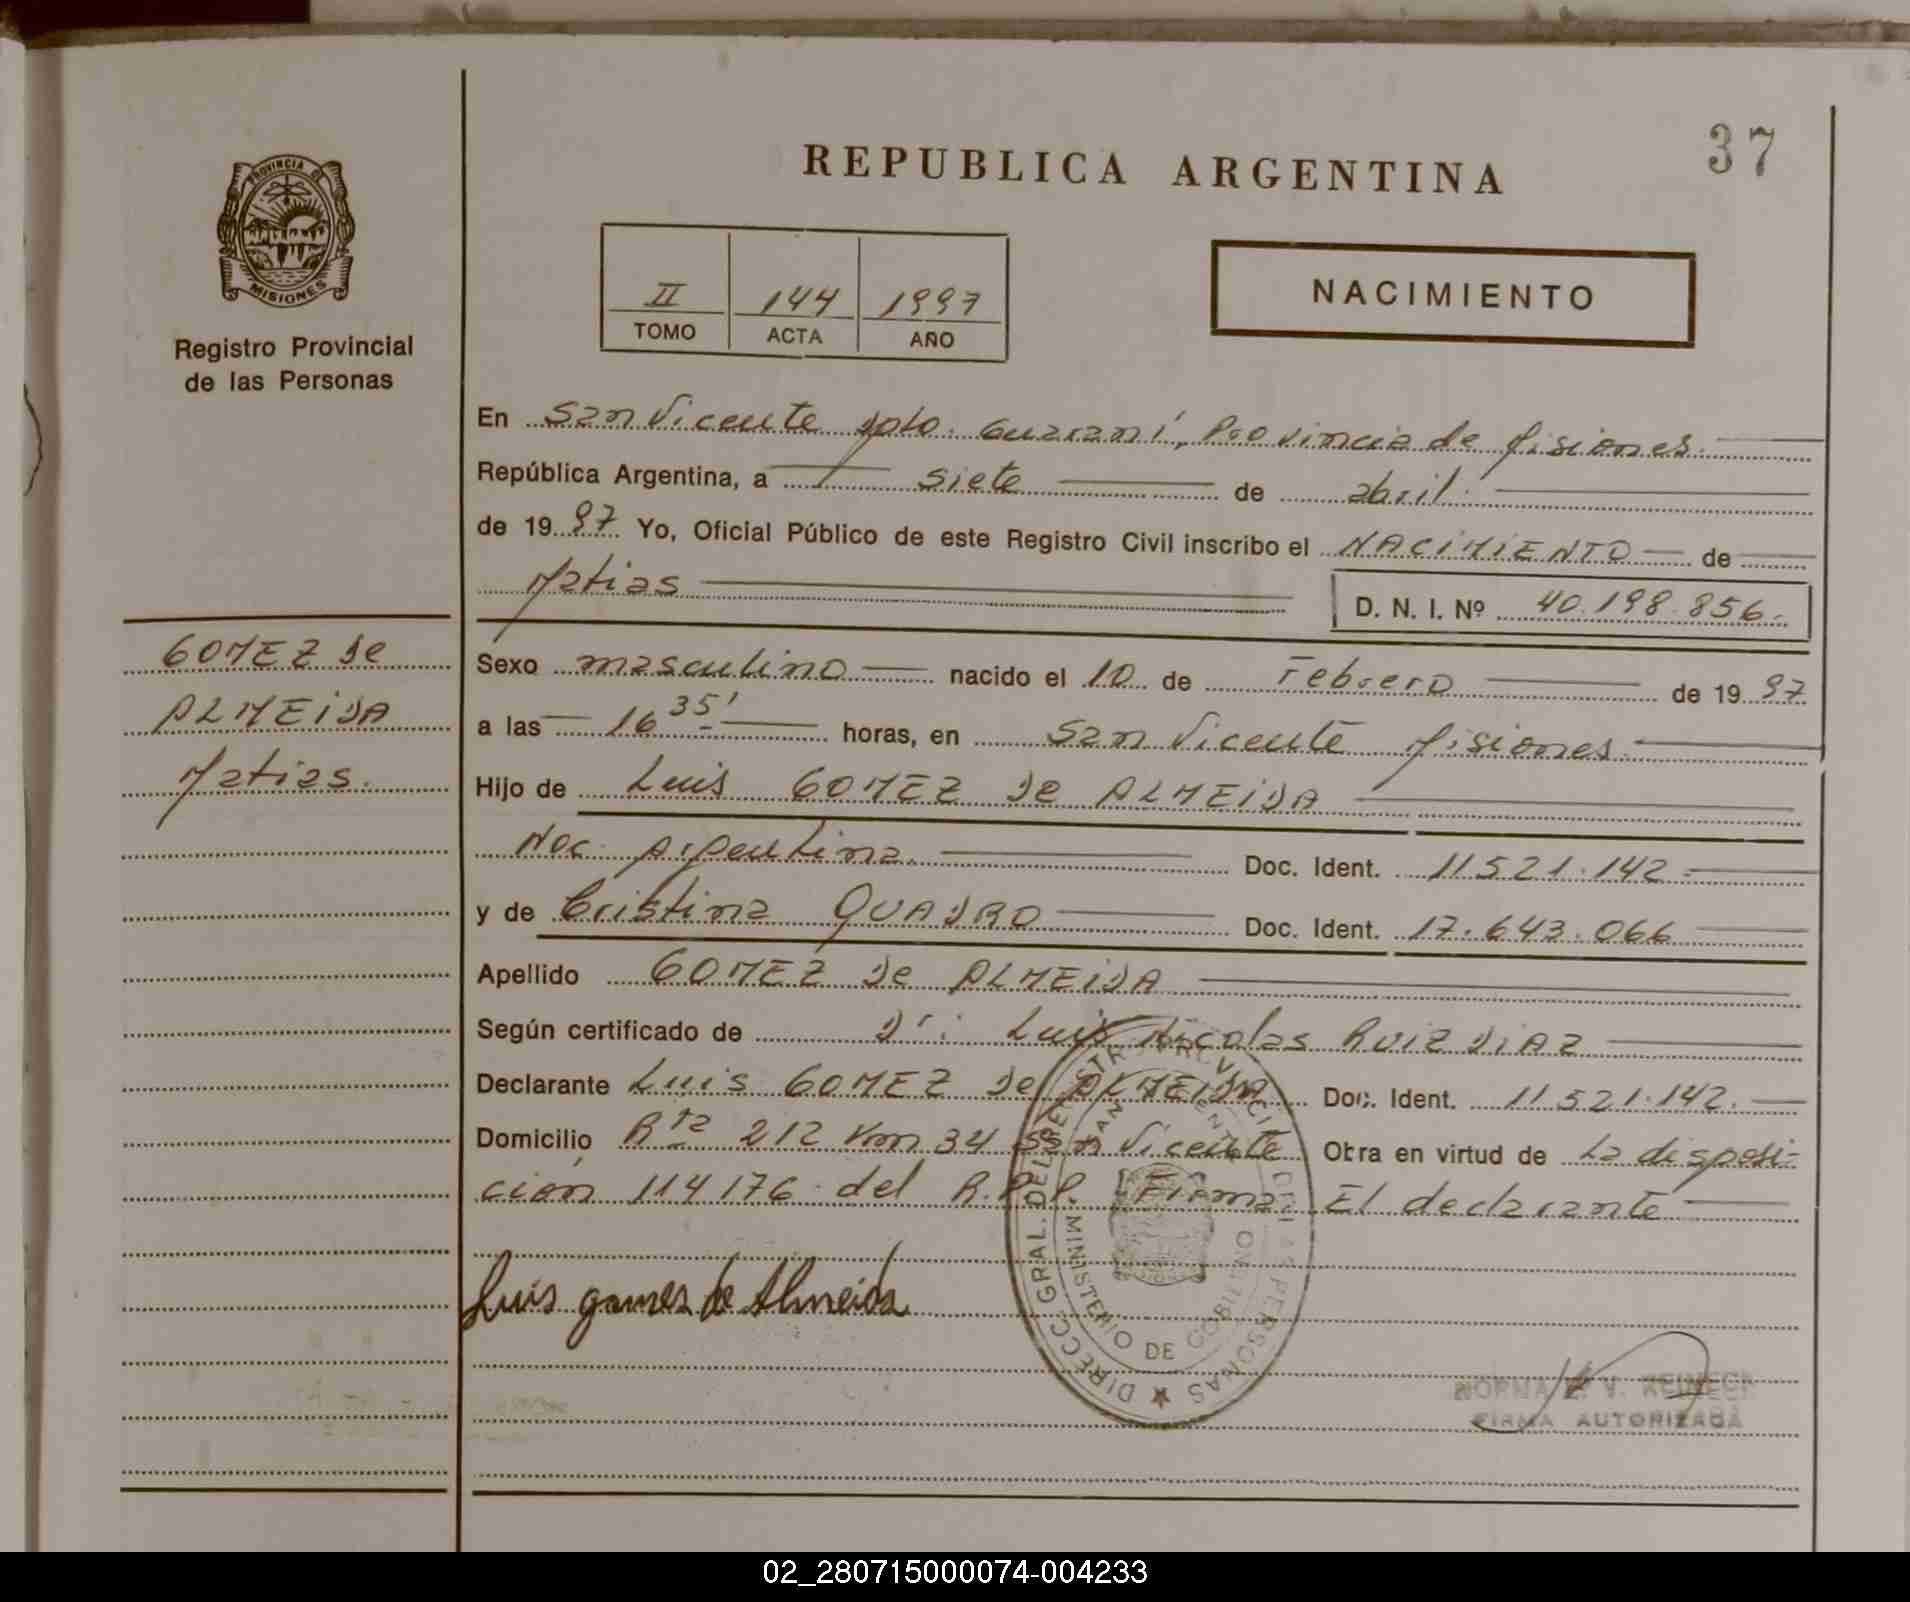 37
REPUBLICA ARGENTINA
PROVINCIA DE
MISIONES
Registro Provincial
de las Personas
II 144 1997
TOMO ACTA AÑO
NACIMIENTO
En San Vicente Dpto. Guaraní, Provincia de Misiones.
República Argentina, a siete de abril.
de 1997 Yo, Oficial Público de este Registro Civil inscribo el NACIMIENTO de
Matias D. N. I. Nº 40.198.856.
GOMEZ de
ALMEIDA
Matias.
Sexo masculino nacido el 10 de Febrero de 1997
a las 16 35' horas, en San Vicente Misiones.
Hijo de Luis GOMEZ de ALMEIDA
Nac. Argentina. Doc. Ident. 11521.142.
y de Cristina QUADRO Doc. Ident. 17.643.066
Apellido GOMEZ de ALMEIDA
Según certificado de Dr: Luis Nicolas RUIZ DIAZ
Declarante Luis GOMEZ de ALMEIDA Doc. Ident. 11.521.142.
Domicilio Rta 212 Km 34 San Vicente Obra en virtud de La disposi-
ción 114176 del R.P.P. Firma: El declarante
Luis gomes de Almeida
DIRECC. GRAL. DEL REGISTRO PROVINCIAL DE LAS PERSONAS
SAN VICENTE
MINISTERIO DE GOBIERNO
NORMA V. REINECK
FIRMA AUTORIZADA
02_280715000074-004233